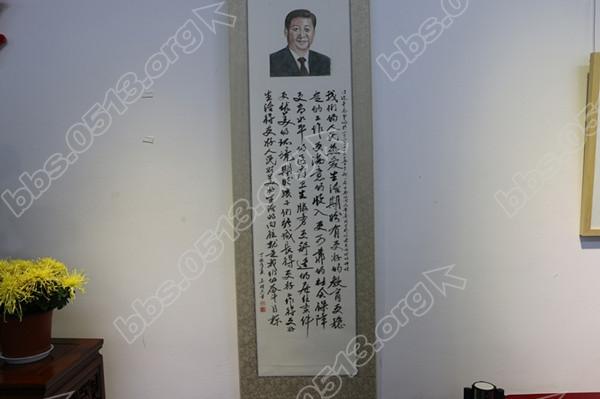 我们的人民热爱生活期盼有更好的教育更稳
定的工作更满意的收入更可靠的社会保障
更高水平的医疗卫生服务更舒适的居住条件
更优美的环境期盼孩子们能成长得更好工作得更好
生活得更好人民对美好生活的向往就是我们的奋斗目标
bbs.0513.org
bbs.0513.org
bbs.0513.org
bbs.0513.org
bbs.0513.org
bbs.0513.org